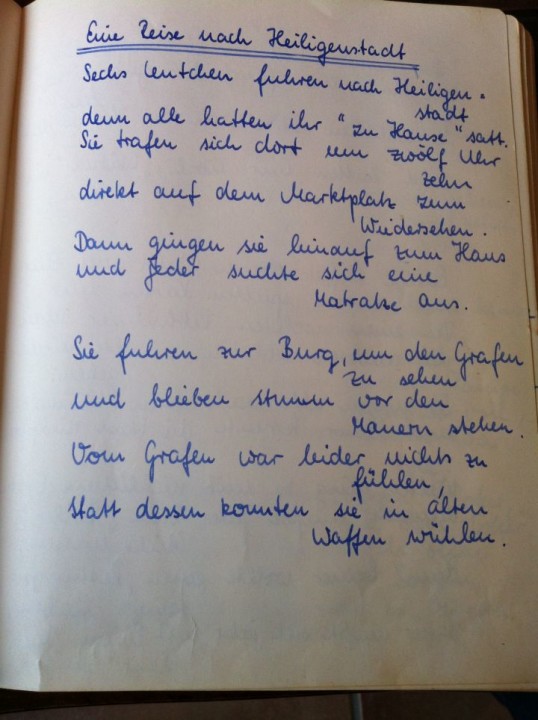 Eine Reise nach Heiligenstadt
Sechs Leutchen fuhren nach Heiligen-
stadt
denn alle hatten ihr "zu Hause" satt.
Sie trafen sich dort um zwölf Uhr
zehn
direkt auf dem Marktplatz zum
Wiedersehen.
Dann gingen sie hinauf zum Haus
und jeder suchte sich eine
Matratze aus.
Sie fuhren zur Burg, um den Grafen
zu sehen
und blieben stumm vor den
Mauern stehen.
Vom Grafen war leider nichts zu
fühlen,
statt dessen konnten sie in alten
Waffen wühlen.